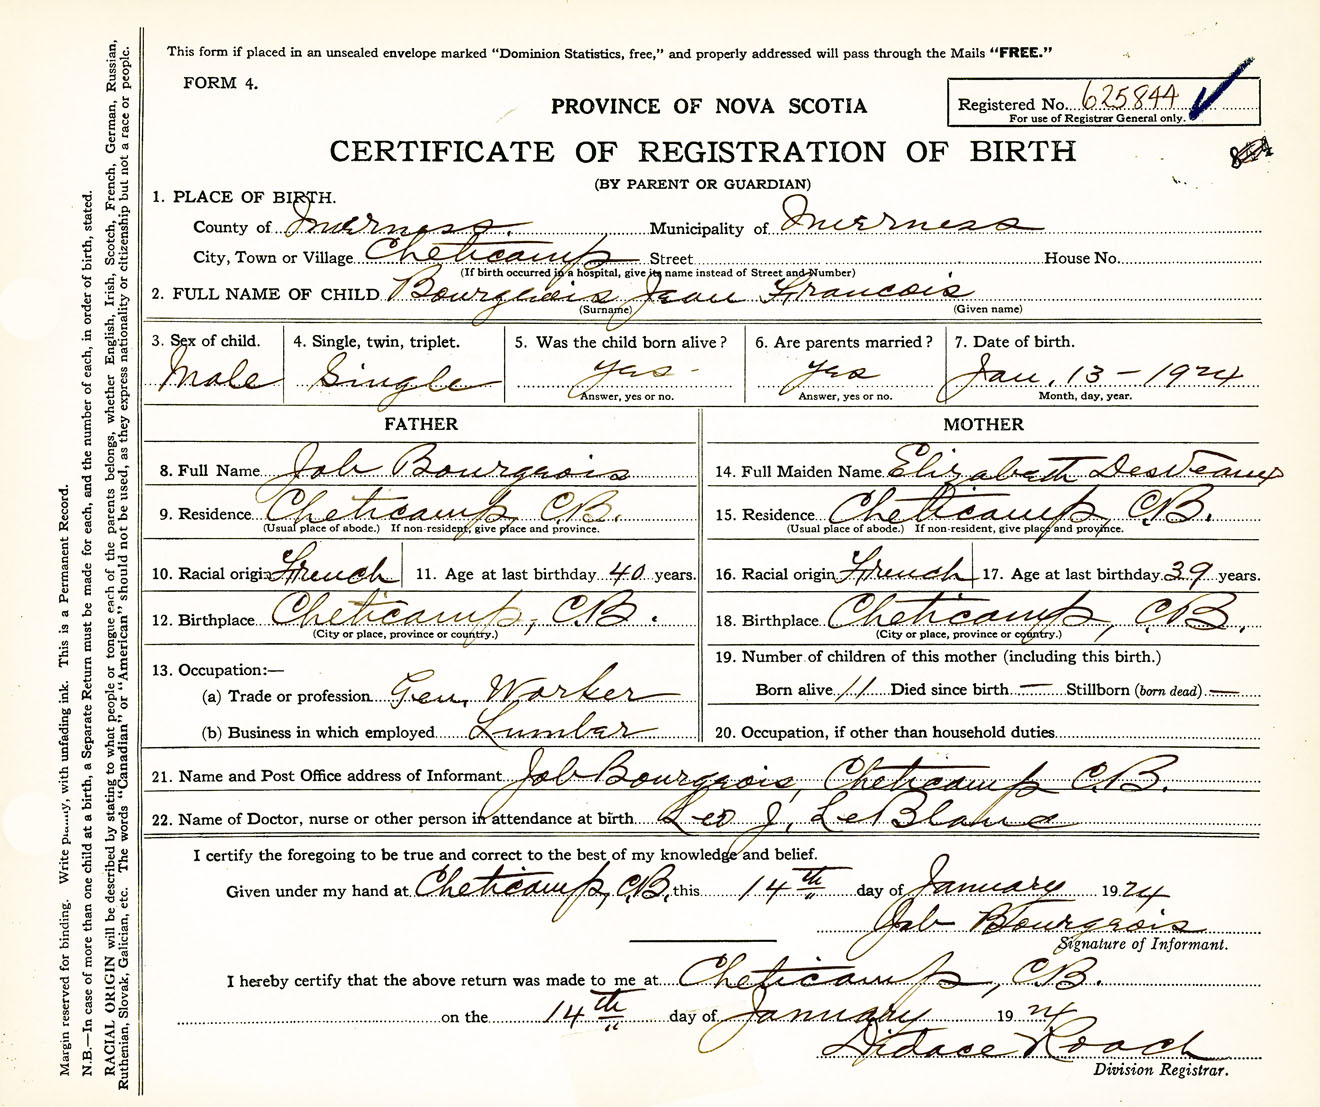 This form if placed in an unsealed envelope marked “Dominion Statistics, free,” and properly addressed will pass through the Mails “FREE.”
FORM 4.
PROVINCE OF NOVA SCOTIA
Registered No. 625844
For use of Registrar General only.
CERTIFICATE OF REGISTRATION OF BIRTH
(BY PARENT OR GUARDIAN)
1. PLACE OF BIRTH.
County of Inverness. Municipality of Inverness
City, Town or Village Cheticamp Street House No.
(If birth occurred in a hospital, give its name instead of Street and Number)
2. FULL NAME OF CHILD Bourgeois Jean Francois
(Surname) (Given name)
3. Sex of child. 4. Single, twin, triplet. 5. Was the child born alive? 6. Are parents married? 7. Date of birth.
Male Single yes - yes Jan. 13 - 1924
Answer, yes or no. Answer, yes or no. Month, day, year.
FATHER MOTHER
8. Full Name Job Bourgeois 14. Full Maiden Name Elizabeth DesVeaux
9. Residence Cheticamp, C.B. 15. Residence Cheticamp, C.B.
(Usual place of abode.) If non-resident, give place and province. (Usual place of abode.) If non-resident, give place and province.
10. Racial origin French 11. Age at last birthday 40 years. 16. Racial origin French 17. Age at last birthday 39 years.
12. Birthplace Cheticamp, C.B. 18. Birthplace Cheticamp, C.B.
(City or place, province or country.) (City or place, province or country.)
13. Occupation:— 19. Number of children of this mother (including this birth.)
(a) Trade or profession Gen. Worker Born alive 11 Died since birth — Stillborn (born dead) —
(b) Business in which employed Lumber 20. Occupation, if other than household duties
21. Name and Post Office address of Informant Job Bourgeois, Cheticamp C.B.
22. Name of Doctor, nurse or other person in attendance at birth Leo J. LeBlanc
I certify the foregoing to be true and correct to the best of my knowledge and belief.
Given under my hand at Cheticamp, C.B. this 14th day of January 1924
Job Bourgeois
Signature of Informant.
I hereby certify that the above return was made to me at Cheticamp, C.B.
on the 14th day of January 1924
Didace Roach
Division Registrar.
Margin reserved for binding. Write plainly, with unfading ink. This is a Permanent Record.
N.B.—In case of more than one child at a birth, a Separate Return must be made for each, and the number of each, in order of birth, stated.
RACIAL ORIGIN will be described by stating to what people or tongue each of the parents belongs, whether English, Irish, Scotch, French, German, Russian,
Ruthenian, Slovak, Galician, etc. The words “Canadian” or “American” should not be used, as they express nationality or citizenship but not a race or people.